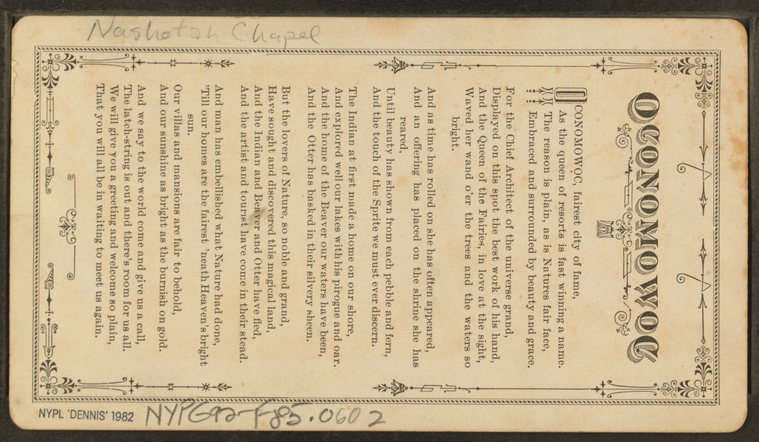 Nashotah Chapel
OCONOMOWOC
OCONOMOWOC, fairest city of fame,
As the queen of resorts is fast winning a name.
The reason is plain, as is Natures fair face,
Embraced and surrounded by beauty and grace.
For the Chief Architect of the universe grand,
Displayed on this spot the best work of his hand,
And the Queen of the Fairies, in love at the sight,
Waved her wand o'er the trees and the waters so
bright.
And as time has rolled on she has often appeared,
And an offering has placed on the shrine she has
reared,
Until beauty has shown from each pebble and fern,
And the touch of the Sprite we must ever discern.
The Indian at first made a home on our shore,
And explored well our lakes with his pirogue and oar.
And the home of the Beaver our waters have been,
And the Otter has basked in their silvery sheen.
But the lovers of Nature, so noble and grand,
Have sought and discovered this magical land,
And the Indian and Beaver and Otter have fled,
And the artist and tourist have come in their stead.
And man has embellished what Nature had done,
'Till our homes are the fairest 'neath Heaven's bright
sun.
Our villas and mansions are fair to behold,
And our sunshine as bright as the burnish on gold.
And we say to the world come and give us a call,
The latch-string is out and there's room for us all.
We will give you a greeting and welcome so plain,
That you will all be in waiting to meet us again.
NYPL 'DENNIS' 1982
NYPG92-F85.0602